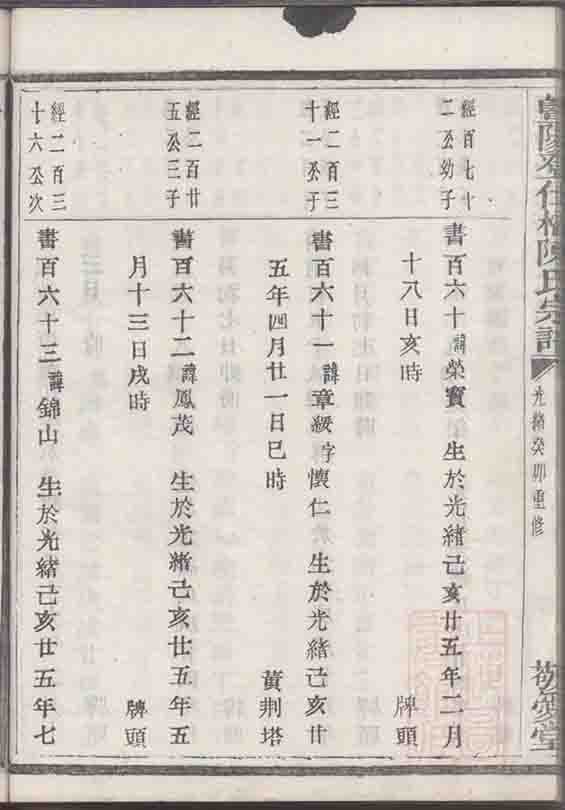 陽
陳氏宗譜
光緒癸卯重修
敬愛堂
經百七十
二公幼子
書百六十諱榮寶 生於光緒己亥廿五年二月
十八日亥時 牌頭
經二百三
十一公子
書百六十一諱章綬字懷仁 生於光緒己亥廿
五年四月廿一日巳時 黃荆塔
經二百廿
五公三子
書百六十二諱鳳茂 生於光緒己亥廿五年五
月十三日戌時 牌頭
經二百三
十六公次
書百六十三諱錦山 生於光緒己亥廿五年七